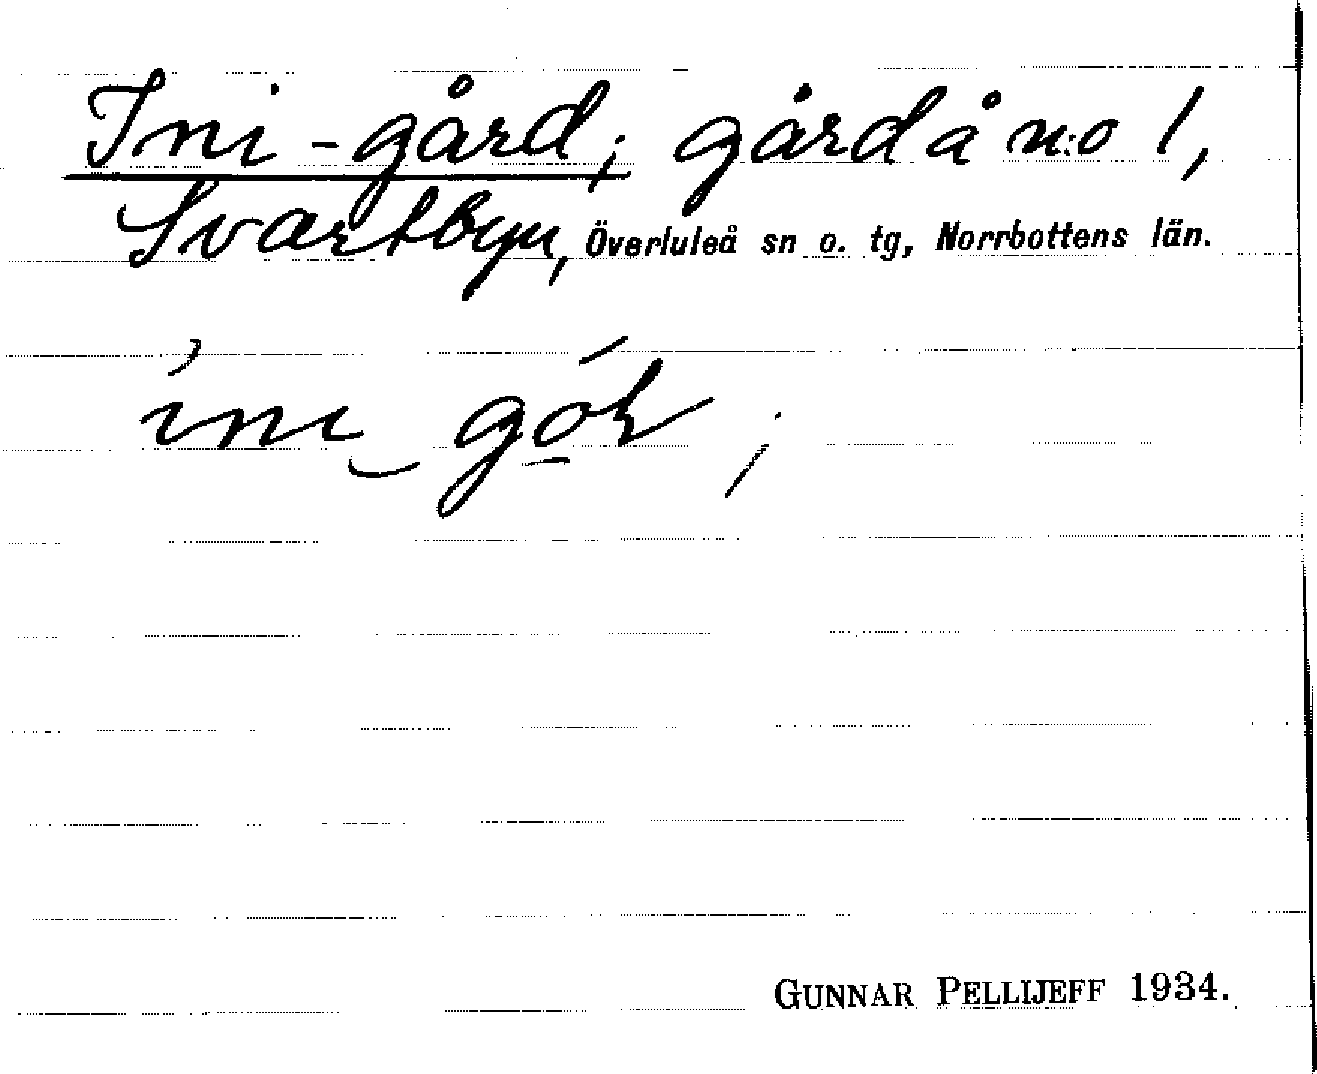 Ini-gård; gård å n:o 1,
Svartbyn, Överluleå sn o. tg, Norrbottens län.
GUNNAR PELLIJEFF 1934.